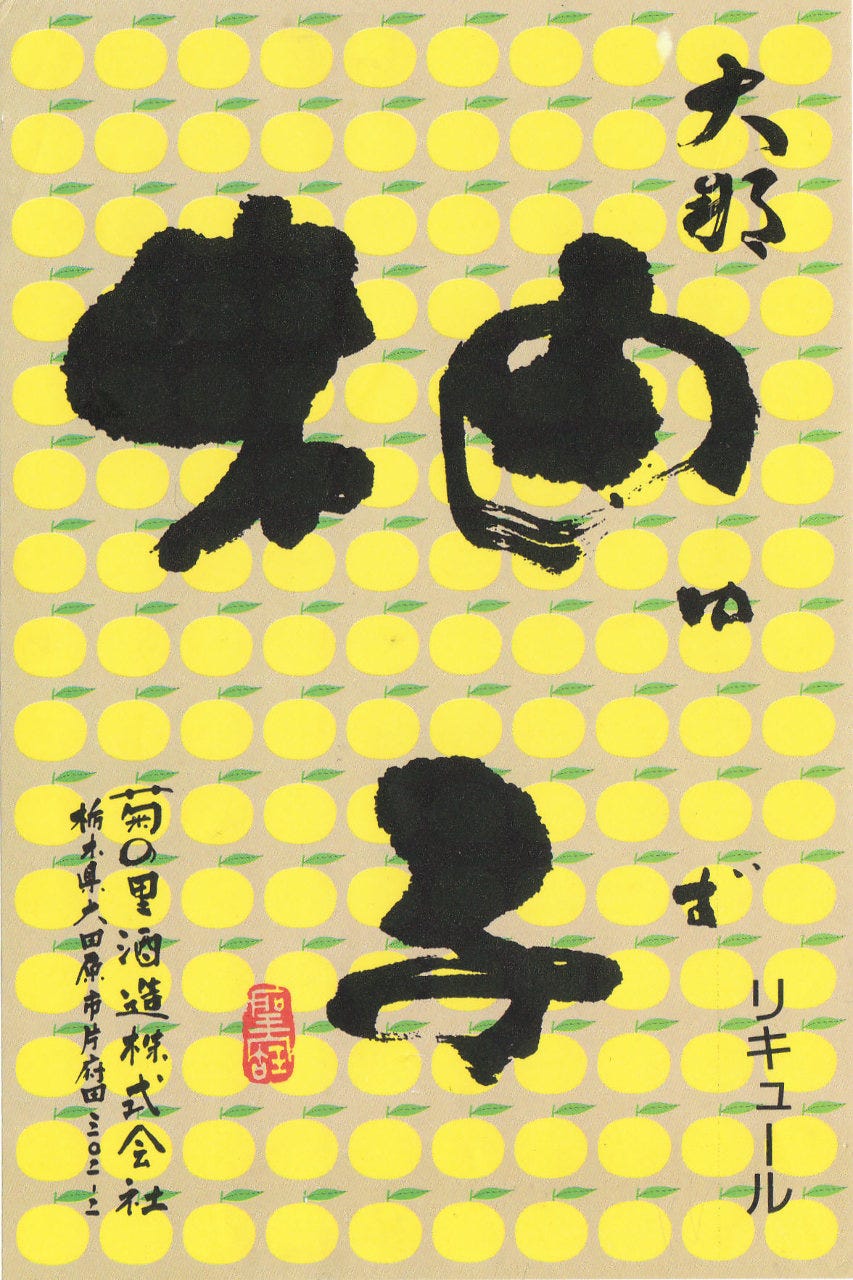 大那
柚子
ゆ
ず
リキュール
菊の里酒造株式会社
栃木県大田原市片府田三〇二-二